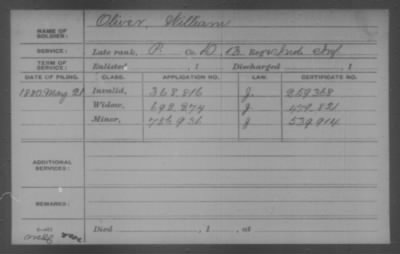 NAME OF SOLDIER: Oliver, William
SERVICE: Late rank, P. Co. D, 13 Reg't Ind Inf
TERM OF SERVICE: Enlisted , 1 Discharged , 1
DATE OF FILING. CLASS. APPLICATION NO. LAW. CERTIFICATE NO.
1880 May 21 Invalid, 368.816 J. 259368
Widow, 692.874 J. 479.821
Minor, 756936 J. 539914
ADDITIONAL SERVICES:
REMARKS:
Died , 1 , at